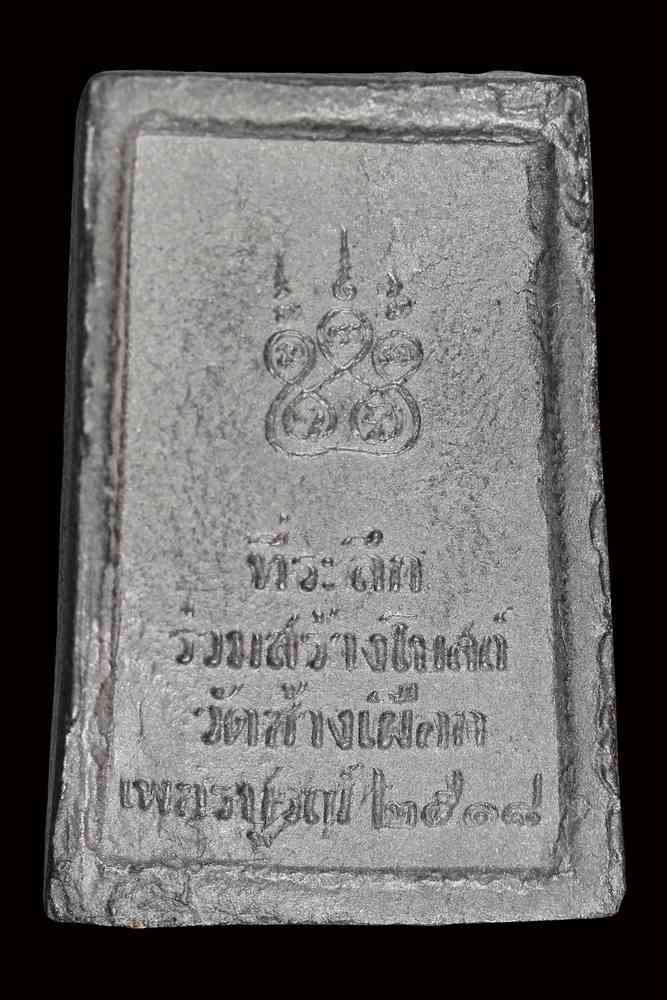 ที่ระลึก
ร่วมสร้างโบสถ์
วัดช้างเผือก
เพชรบูรณ์ ๒๕๑๘